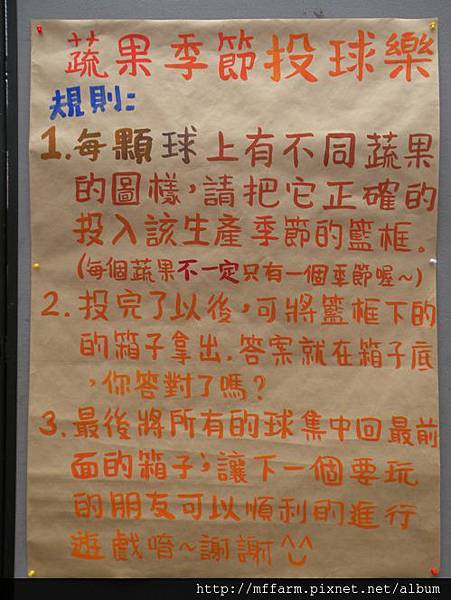 蔬果季節投球樂
規則:
1.每顆球上有不同蔬果
的圖樣,請把它正確的
投入該生產季節的籃框。
(每個蔬果不一定只有一個季節喔~)
2.投完了以後,可將籃框下的
的箱子拿出.答案就在箱子底
,你答對了嗎?
3.最後將所有的球集中回最前
面的箱子;讓下一個要玩
的朋友可以順利的進行
遊戲唷~謝謝^^
http://mffarm.pixnet.net/album